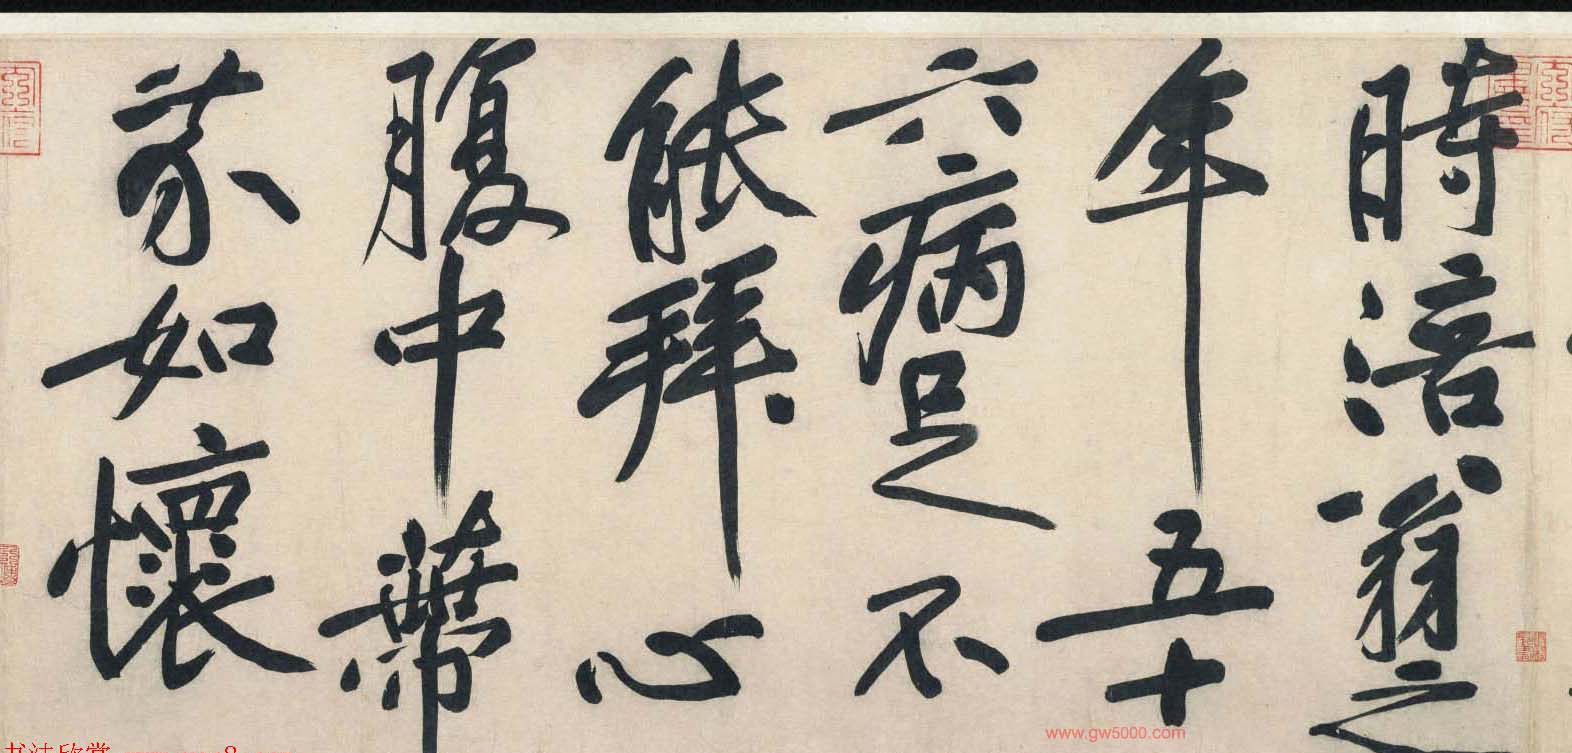 時涪翁之
年五十
六病足不
能拜心
腹中蔕
芥如懷
www.gw5000.com
书法欣赏
8